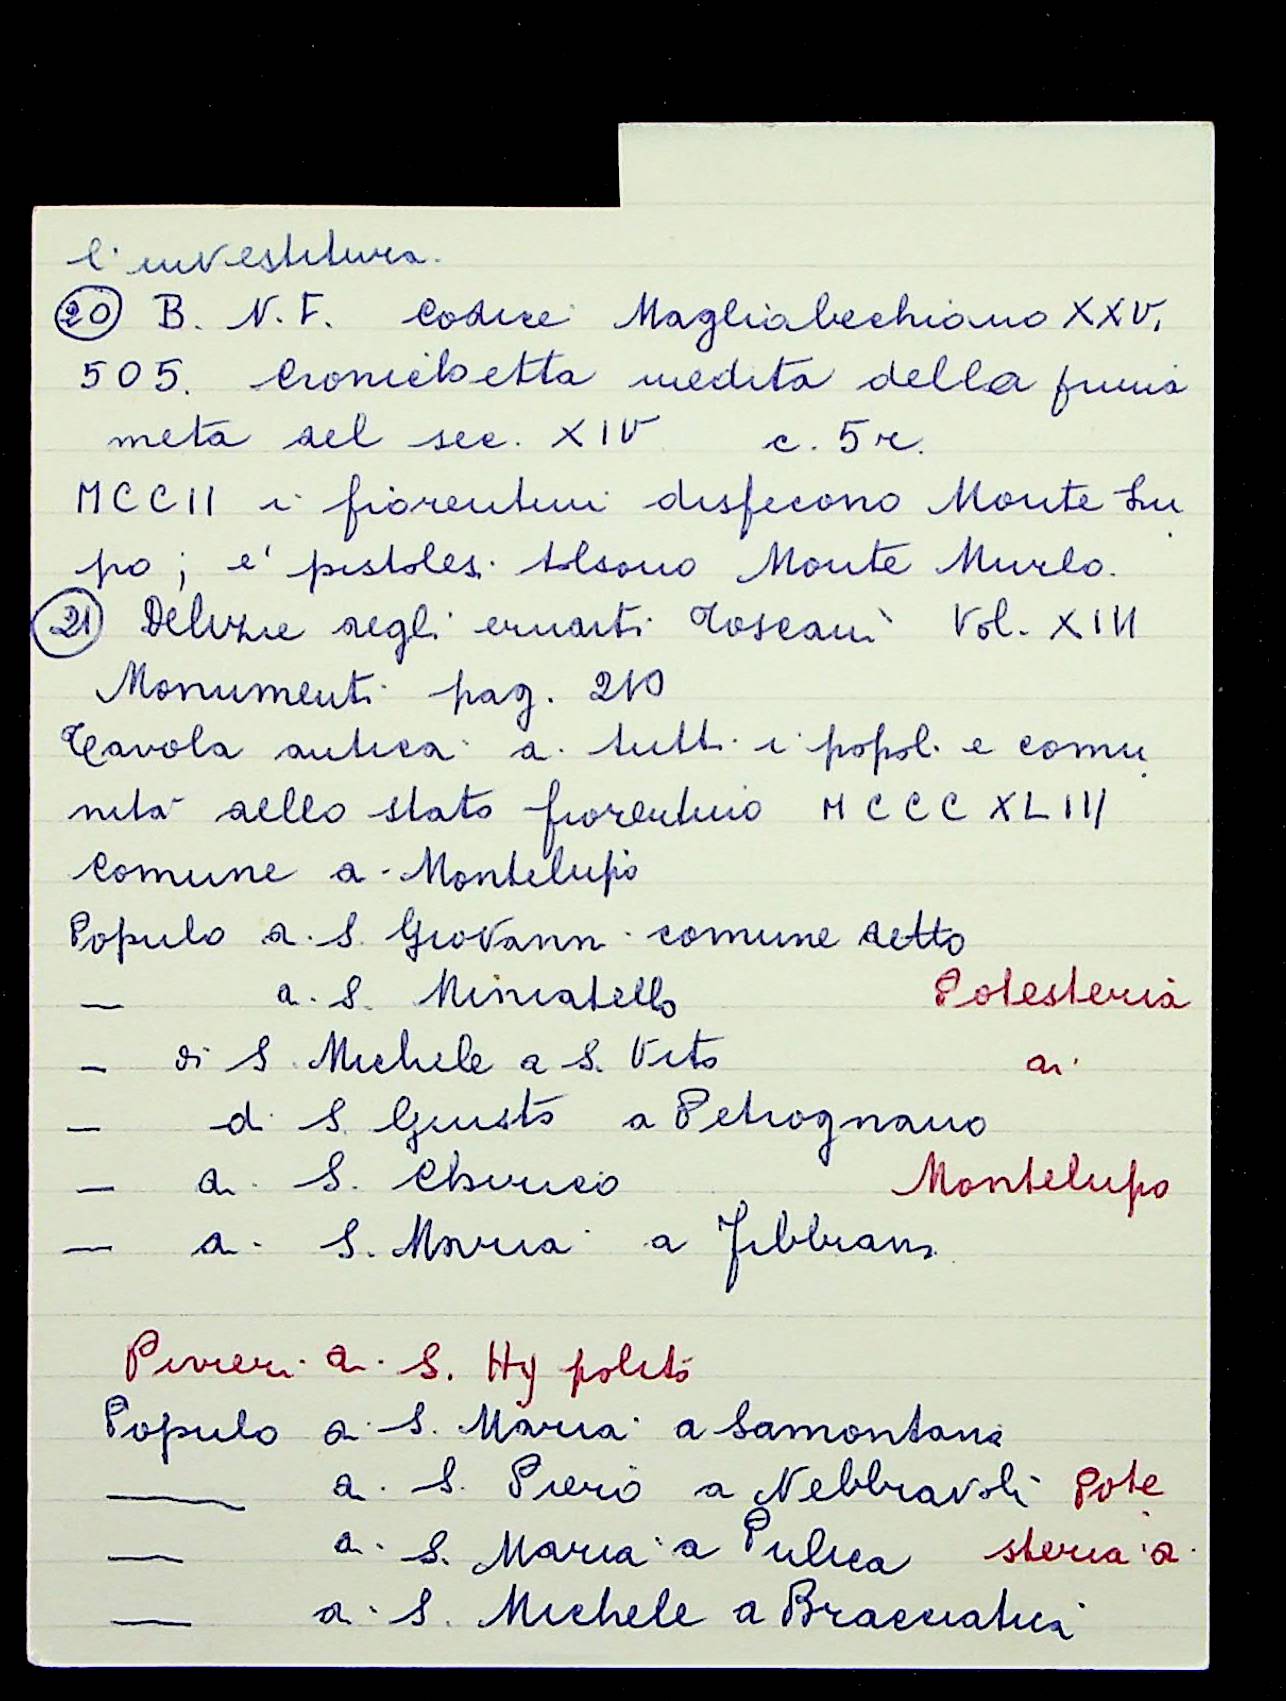 l'investitura.
20 B. N. F. Codice Magliabechiano XXV,
505. Cronichetta inedita della prima
metà del sec. XIV c. 5 r.
MCCII i fiorentini disfecono Monte Lu
po; e' pistolesi tolsono Monte Murlo.
21 Delizie degli eruditi Toscani Vol. XIII
Monumenti pag. 210
Tavola antica di tutti i popoli e comu
nità dello stato fiorentino MCCCXLIII
Comune di Montelupo
Populo di S. Giovanni comune detto
— di S. Miniatello Potesteria
— di S. Michele a S. Vito di
— di S. Giusto a Petrognano
— di S. Chirico Montelupo
— di S. Maria a Fibbiana
Pivieri di S. Hypolito
Populo di S. Maria a Samontana
— di S. Piero a Nebbiavoli Pote
— di S. Maria a Pulica steria di
— di S. Michele a Bracciatica